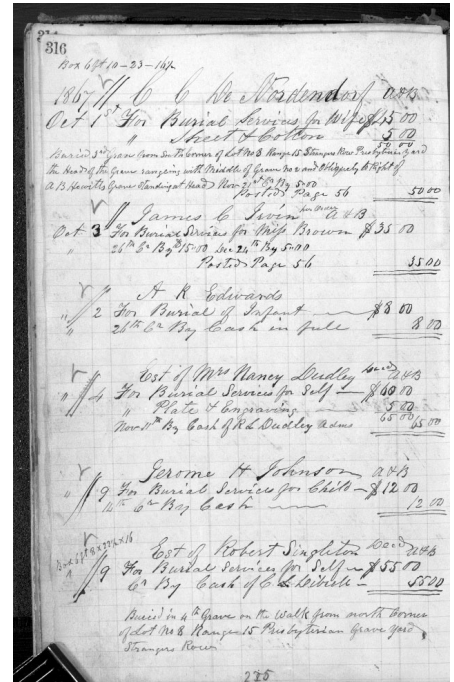 316
Box 6 ft 10-23-16½
1867 // C C De Nordendorf A&B
Oct 1st For Burial Services for Wife $45 00
" Sheet & Cotton 5 00
50 00
Buried 3rd Grave from South corner of Lot No 8 Range 15 Strangers Row Presbyterian Yard
the Head of the Grave ranging with Middle of Grave No 2 and Obliquely to right of
A B Hewitts Grave Standing at Head Nov 21st Cr By 5.00
Posted Page 56 50 00
// James C Irvin A&B
Oct 3 For Burial Services for Miss Brown $35 00
" 26th Cr By 15.00 Dec 24th By 5.00
Posted Page 56 35 00
A R Edwards
" // 2 For Burial of Infant $8 00
" 26th Cr By Cash in full 8 00
Est of Mrs Nancy Dudley Decd A&B
" // 4 For Burial Services for Self $60 00
" Plate & Engraving 5 00
65 00
Nov 11th By Cash of R L Dudley Adms 65 00
Jerome H Johnson A&B
" // 9 For Burial Services for Child $12 00
14th Cr By Cash 12 00
Est of Robert Singliton Decd A&B
Box 6 ft 8 x 22½ x 16
// 9 For Burial Services for Self $55 00
Cr By Cash of C L 55 00
Buried in 4th Grave on the Walk from north Corner
of Lot No 8 Range 15 Presbyterian Grave Yard
Strangers Row